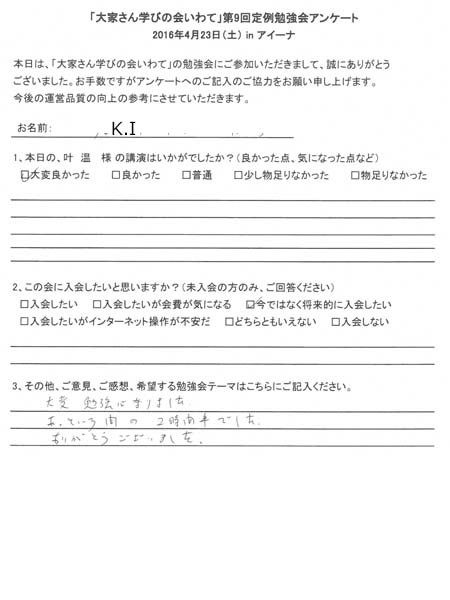 「大家さん学びの会いわて」第9回定例勉強会アンケート
2016年4月23日(土) in アイーナ
本日は、「大家さん学びの会いわて」の勉強会にご参加いただきまして、誠にありがとう
ございました。お手数ですがアンケートへのご記入のご協力をお願い申し上げます。
今後の運営品質の向上の参考にさせていただきます。
お名前: K.I
1、本日の、叶 温 様 の講演はいかがでしたか?(良かった点、気になった点など)
☑大変良かった □良かった □普通 □少し物足りなかった □物足りなかった
2、この会に入会したいと思いますか?(未入会の方のみ、ご回答ください)
□入会したい □入会したいが会費が気になる ☑今ではなく将来的に入会したい
□入会したいがインターネット操作が不安だ □どちらともいえない □入会しない
3、その他、ご意見、ご感想、希望する勉強会テーマはこちらにご記入ください。
大変 勉強になりました
あっという間の 2時間半でした
ありがとうございました。